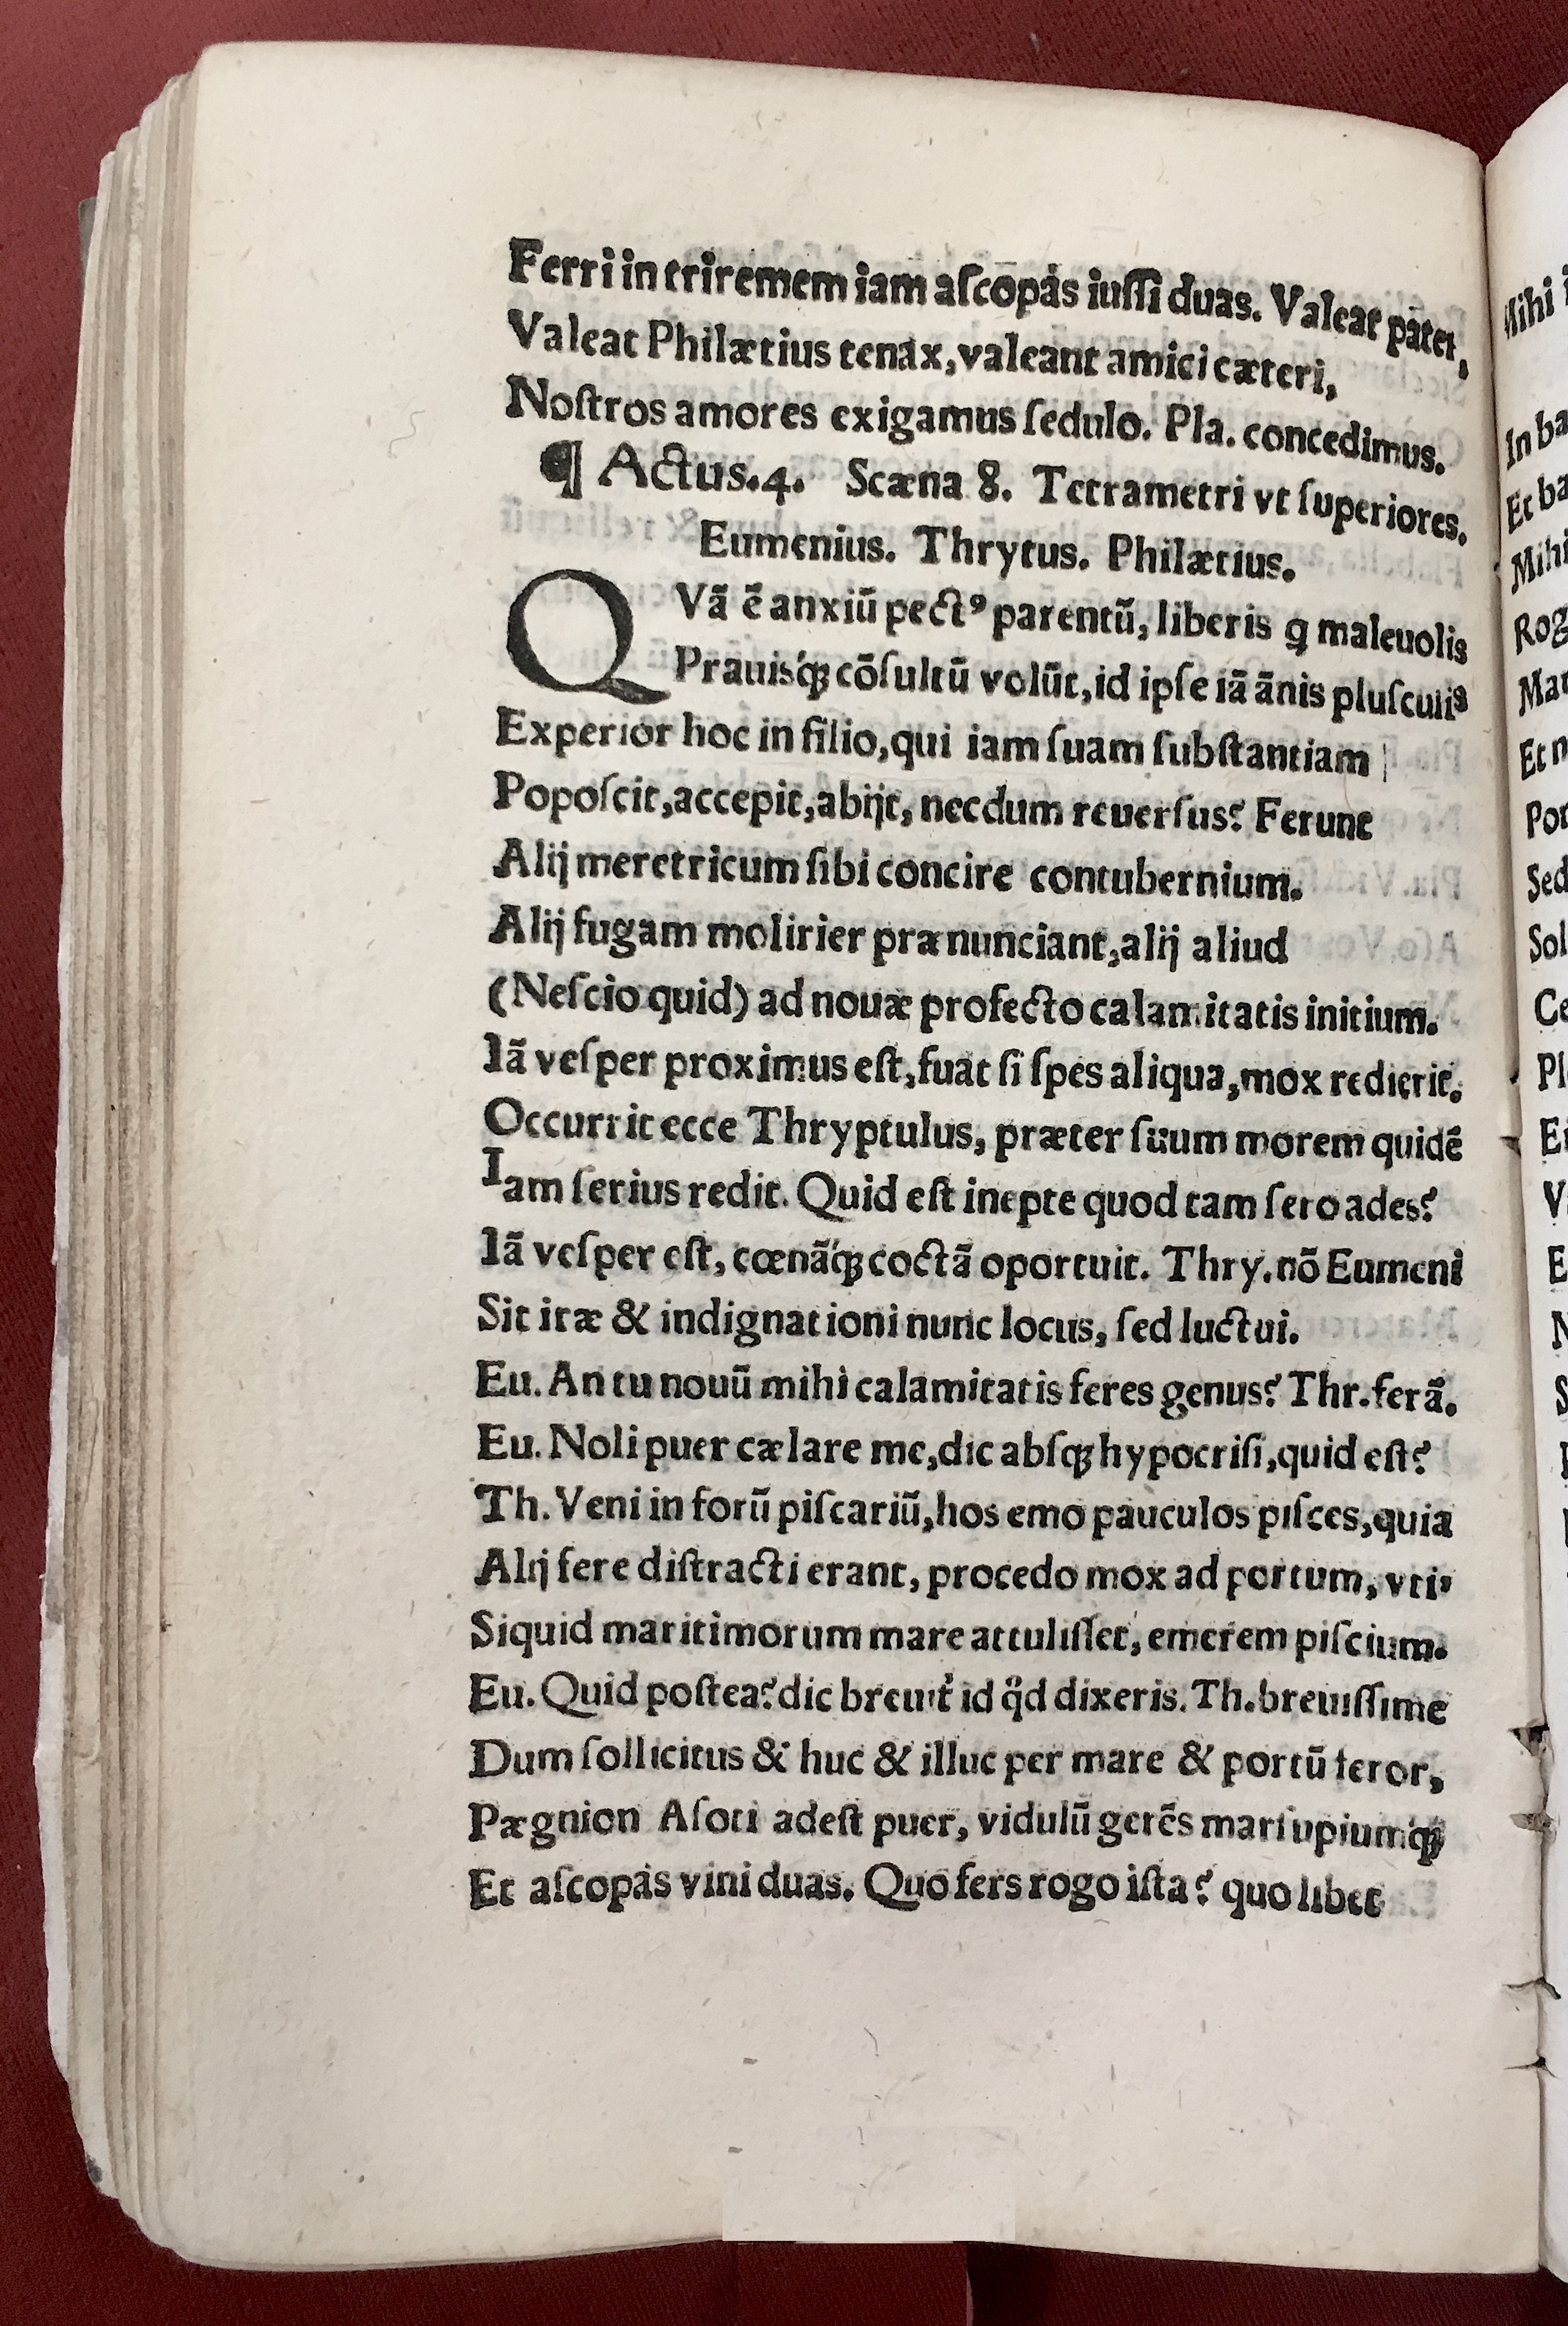 Ferri in triremem iam aſcopás iuſſi duas. Valeat pater,
Valeat Philætius tenax, valeant amici cæteri,
Noſtros amores exigamus ſedulo. Pla. concedimus.
¶ Actus.4. Scæna 8. Tetrametri vt ſuperiores.
Eumenius. Thrytus. Philætius.
QVã ẽ anxiũ pectꝰ parentũ, liberis q maleuolis
Prauisq́ꝫ cõſultũ volũt, id ipſe iã ãnis pluſculis
Experior hoc in filio, qui iam ſuam ſubſtantiam
Popoſcit, accepit, abijt, necdum reuerſus? Ferunt
Alij meretricum ſibi concire contubernium.
Alij fugam molirier prænunciant, alij aliud
(Neſcio quid) ad nouæ profecto calamitatis initium.
Iã veſper proximus eſt, fuat ſi ſpes aliqua, mox redierit.
Occurrit ecce Thryptulus, præter ſuum morem quidẽ
Iam ſerius redit. Quid eſt inepte quod tam ſero ades?
Iã veſper eſt, cœnãq́ꝫ coctã oportuit. Thry. nõ Eumeni
Sit iræ & indignationi nunc locus, ſed luctui.
Eu. An tu nouũ mihi calamitatis feres genus? Thr. ferã.
Eu. Noli puer cælare me, dic abſqꝫ hypocriſi, quid eſt?
Th. Veni in forũ piſcariũ, hos emo pauculos piſces, quia
Alij fere diſtracti erant, procedo mox ad portum, vti,
Siquid maritimorum mare attuliſſet, emerem piſcium.
Eu. Quid poſtea? dic breuit̉ id qͦd dixeris. Th. breuiſſime
Dum ſollicitus & huc & illuc per mare & portũ feror,
Pægnion Aſoti adeſt puer, vidulũ gerẽs marſupiumq́ꝫ
Et aſcopás vini duas. Quo fers rogo iſta? quo libet
In ba
Et ba
Mihi
Rog
Mat
Et n
Pot
Sed
Sol
Ce